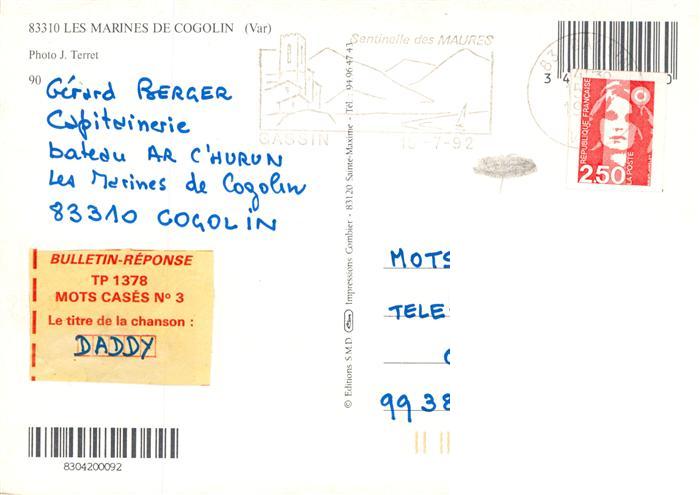 83310 LES MARINES DE COGOLIN (Var)
Photo J. Terret
90
Gérard BERGER
Capitainerie
bateau AR C'HURUN
Les Marines de Cogolin
83310 COGOLIN
BULLETIN-RÉPONSE
TP 1378
MOTS CASÉS Nº 3
Le titre de la chanson :
DADDY
8304200092
© Editions S.M.D. Impressions Combier - 83120 Sainte-Maxime - Tél. 94 96 47 43
Sentinelle des MAURES
GASSIN
-7-92
RÉPUBLIQUE FRANÇAISE
2,50
LA POSTE
MOTS
TELE
99 38